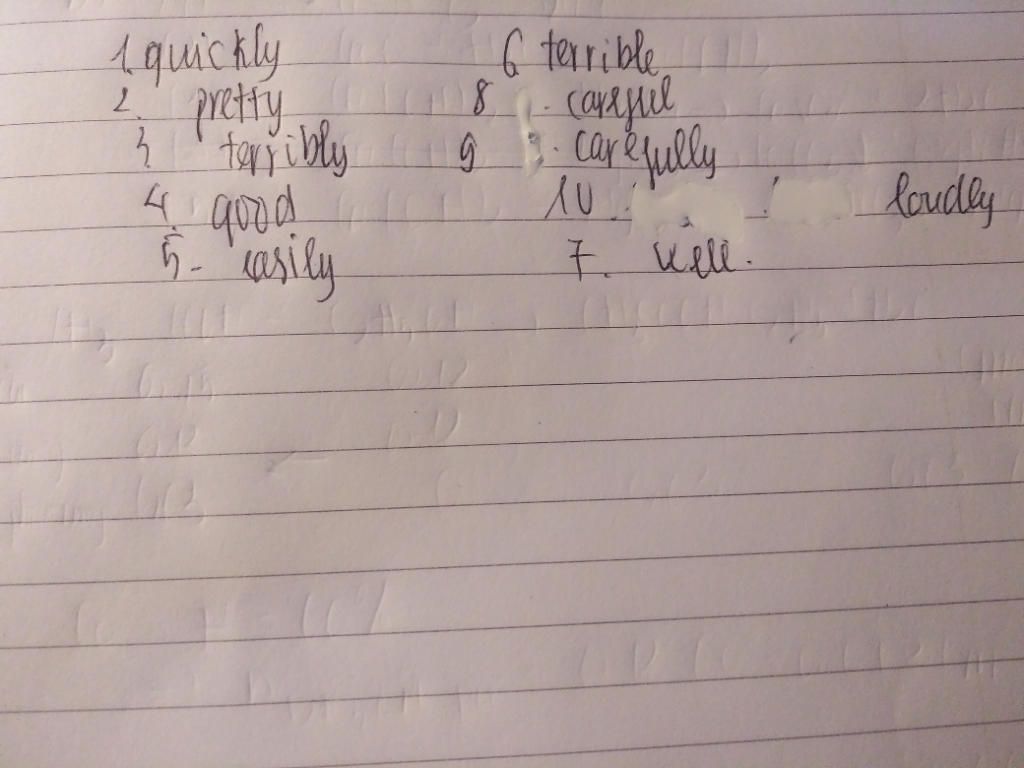 1. quickly 6 terrible
2. pretty 8. careful
3, terribly 9. carefully
4. good 10. loudly
5- easily 7. well.